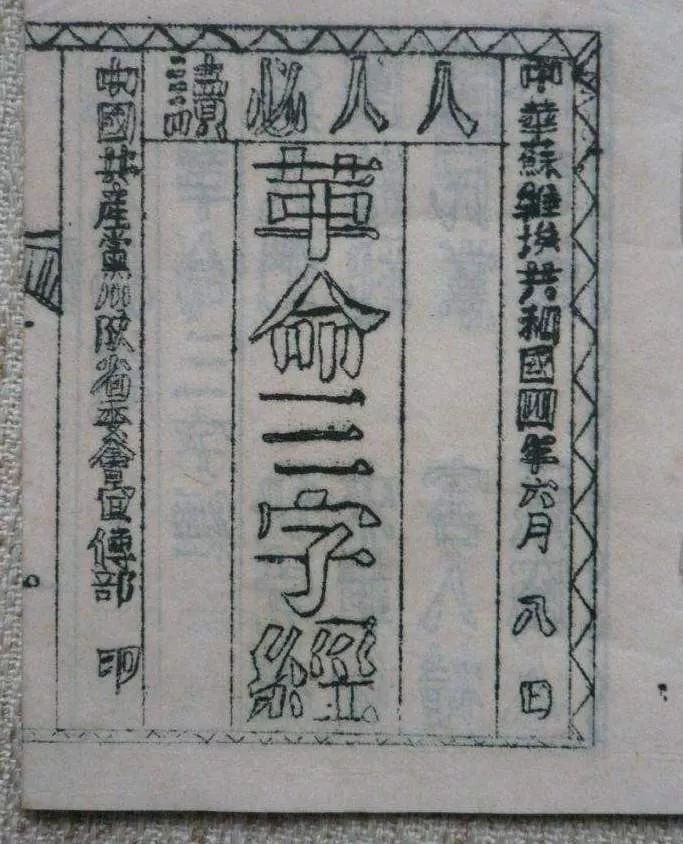 中華蘇維埃共和國四年六月八日
人人必讀
革命三字經
中國共產黨川陝省委會宣傳部 印